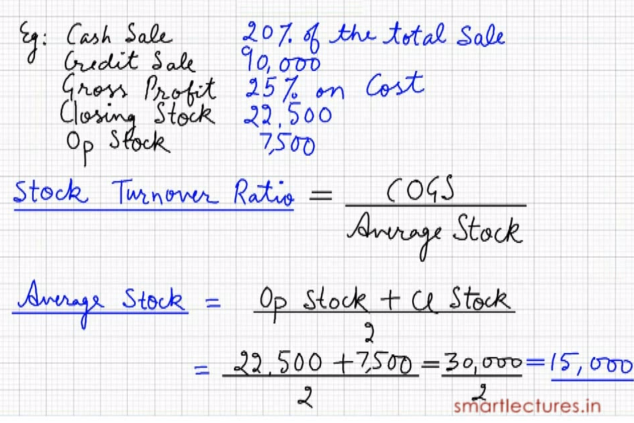 Eg: Cash Sale 20% of the total Sale
Credit Sale 90,000
Gross Profit 25% on Cost
Closing Stock 22,500
Op Stock 7,500
Stock Turnover Ratio = COGS
Average Stock
Average Stock = Op Stock + Cl Stock
2
= 22,500 + 7,500 = 30,000 = 15,000
2 2
smartlectures.in